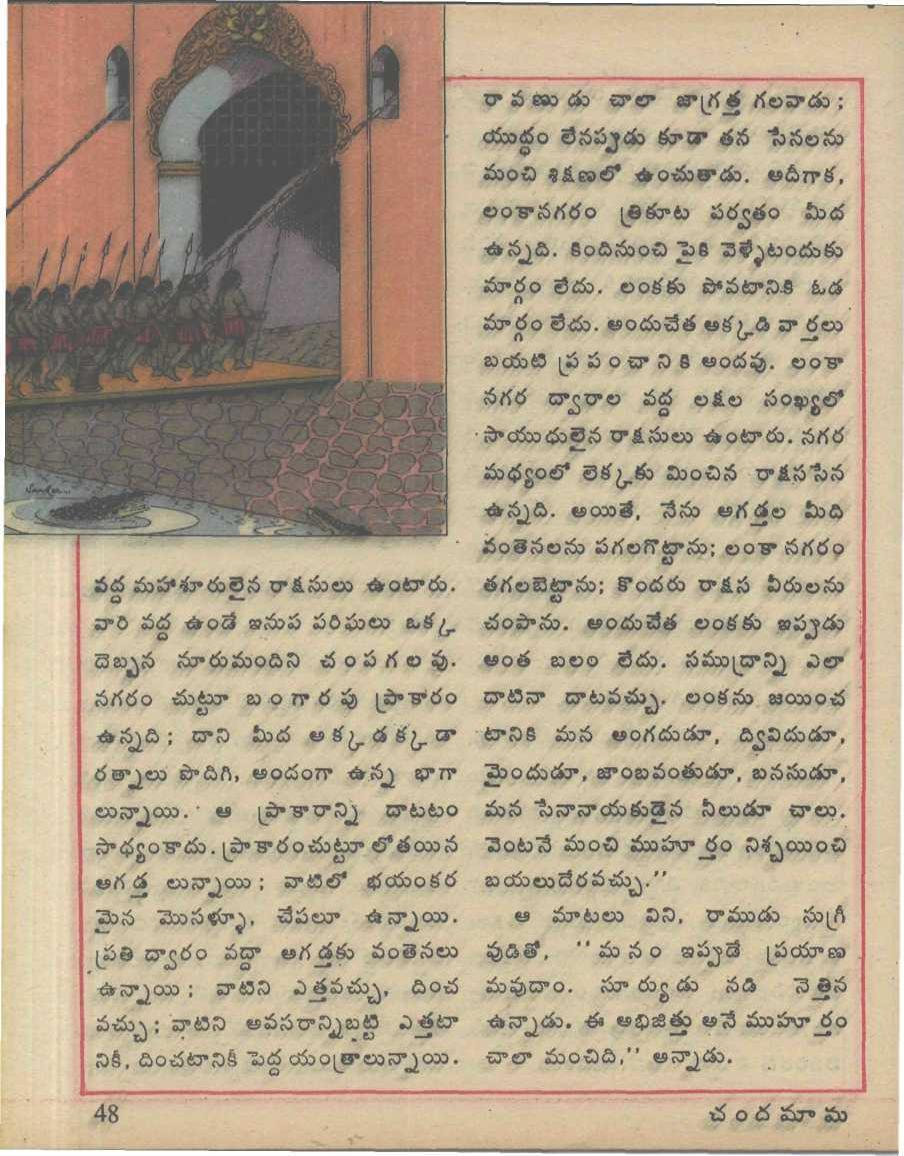 వద్ద మహాశూరులైన రాక్షసులు ఉంటారు.
వారి వద్ద ఉండే ఇనుప పరిఘలు ఒక్క
దెబ్బన నూరుమందిని చంపగలవు.
నగరం చుట్టూ బంగారపు ప్రాకారం
ఉన్నది; దాని మీద అక్కడక్కడా
రత్నాలు పొదిగి, అందంగా ఉన్న భాగా
లున్నాయి. ఆ ప్రాకారాన్ని దాటటం
సాధ్యంకాదు. ప్రాకారంచుట్టూ లోతయిన
అగడ్త లున్నాయి; వాటిలో భయంకర
మైన మొసళ్ళూ, చేపలూ ఉన్నాయి.
ప్రతి ద్వారం వద్దా అగడ్తకు వంతెనలు
ఉన్నాయి; వాటిని ఎత్తవచ్చు, దించ
వచ్చు; వాటిని అవసరాన్నిబట్టి ఎత్తటా
నికీ, దించటానికీ పెద్ద యంత్రాలున్నాయి.
రావణుడు చాలా జాగ్రత్త గలవాడు;
యుద్ధం లేనప్పుడు కూడా తన సేనలను
మంచి శిక్షణలో ఉంచుతాడు. అదీగాక,
లంకానగరం త్రికూట పర్వతం మీద
ఉన్నది. కిందినుంచి పైకి వెళ్ళేటందుకు
మార్గం లేదు. లంకకు పోవటానికి ఓడ
మార్గం లేదు. అందుచేత అక్కడి వార్తలు
బయటి ప్రపంచానికి అందవు. లంకా
నగర ద్వారాల వద్ద లక్షల సంఖ్యలో
సాయుధులైన రాక్షసులు ఉంటారు. నగర
మధ్యంలో లెక్కకు మించిన రాక్షససేన
ఉన్నది. అయితే, నేను అగడ్తల మీది
వంతెనలను పగలగొట్టాను; లంకా నగరం
తగలబెట్టాను; కొందరు రాక్షస వీరులను
చంపాను. అందుచేత లంకకు ఇప్పుడు
అంత బలం లేదు. సముద్రాన్ని ఎలా
దాటినా దాటవచ్చు. లంకను జయించ
టానికి మన అంగదుడూ, ద్వివిదుడూ,
మైందుడూ, జాంబవంతుడూ, బనసుడూ,
మన సేనానాయకుడైన నీలుడూ చాలు.
వెంటనే మంచి ముహూర్తం నిశ్చయించి
బయలుదేరవచ్చు.''
ఆ మాటలు విని, రాముడు సుగ్రీ
వుడితో, ''మనం ఇప్పుడే ప్రయాణ
మవుదాం. సూర్యుడు నడి నెత్తిన
ఉన్నాడు. ఈ అభిజిత్తు అనే ముహూర్తం
చాలా మంచిది,'' అన్నాడు.
48
చందమామ